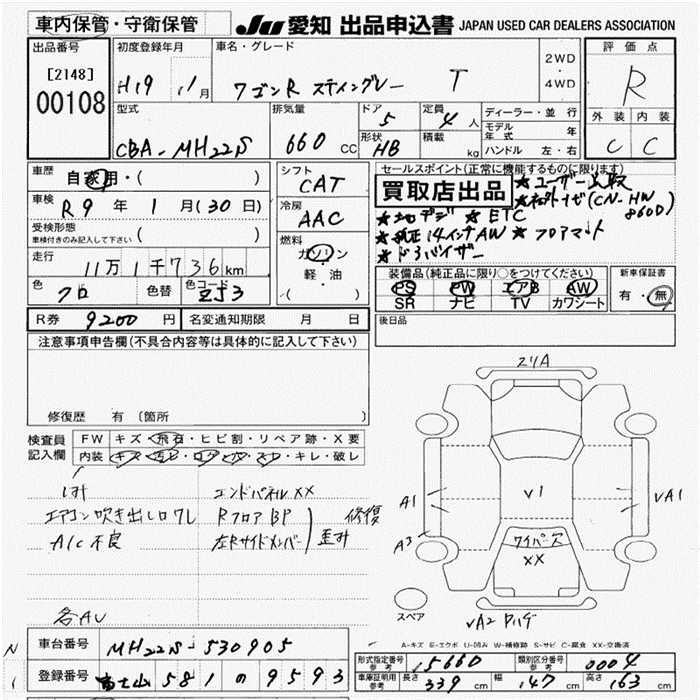 車内保管・守衛保管
JU 愛知 出品申込書 JAPAN USED CAR DEALERS ASSOCIATION
出品番号
[2148]
00108
初度登録年月
H19 年 11月
車名・グレード
ワゴンR スティングレー T
2WD
・
4WD
評価点
R
外装 内装
C C
型式
CBA-MH22S
排気量
660 CC
ドア
5
形状
HB
定員
4人
積載
kg
ディーラー・並行
モデル年式 年
ハンドル 左・右
車歴
自家用・( )
車検
R9 年 1月(30日)
受検形態
車検付きのみ記入して下さい ( )
走行
11万1千736km
色
クロ
色替
色コード
ZJ3
シフト
CAT
冷房
AAC
燃料
ガソリン
・
軽・油
( )
セールスポイント(正常に機能するものに限ります)
買取店出品
★ユーザー買取
★社外ナビ(CN-HW860D)
★地デジ ★ETC
★純正14インチAW ★フロアマット
★ドアバイザー
装備品(純正品に限り○をつけてください)
PS PW エアB AW
SR ナビ TV カワシート
新車保証書
有・無
R券 9200 円
名変通知期限 月 日
後日品
注意事項申告欄(不具合内容等は具体的に記入して下さい)
修復歴 有〔箇所
検査員記入欄
FW キズ・飛石・ヒビ割・リペア跡・X要
内装 キズ・汚ビ・コゲ・穴・スレ・キレ・破レ
エアコン吹き出し口ワレ
A/C不良
エンドパネルXX
RフロアBP
左Rサイドメンバー
修復
歪み
各AU
スリA
A1
A3
V1
VA1
ワイパーズ
XX
スペア
VA2
A-キズ E-エクボ U-凹み W-補修跡 S-サビ C-腐食 XX-交換済
車台番号
MH22S-530905
登録番号
富士山 581 の 9593
型式指定番号
参考
15660
類別区分番号
参考
0004
車庫証明用
参考
長さ 339 cm
幅 147 cm
高さ 163 cm